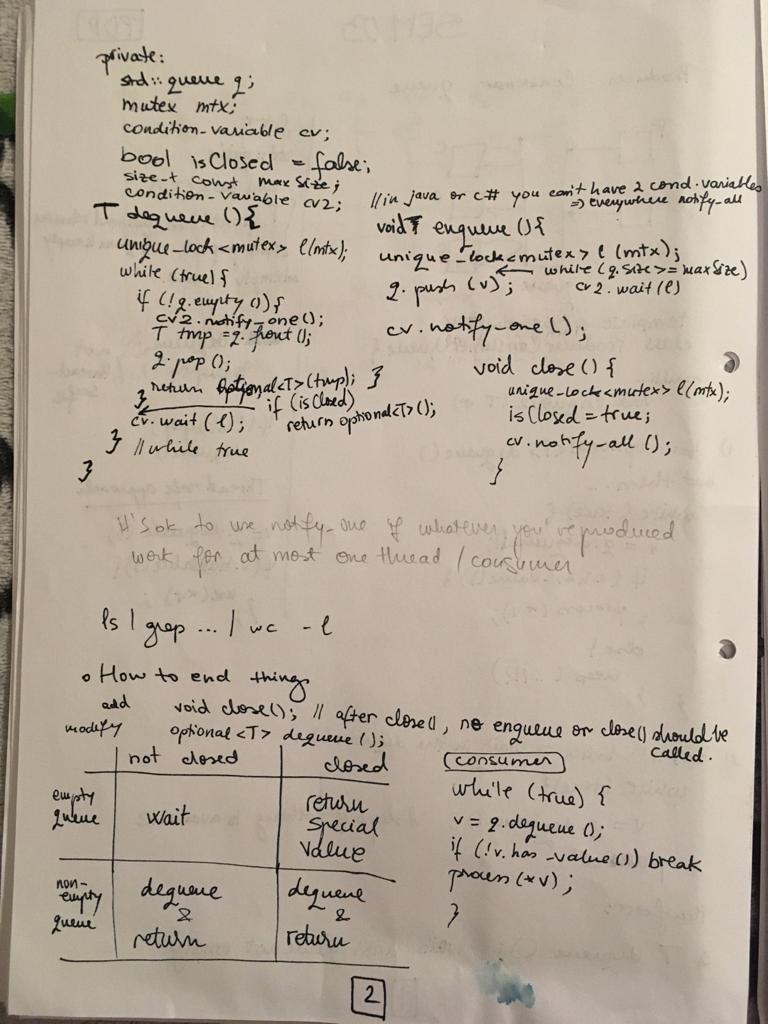 private:
std::queue q;
mutex mtx;
condition-variable cv;
bool isClosed = false;
size-t const maxSize;
condition-variable cv2;
//in java or c# you can't have 2 cond.variables
=> everywhere notify-all
T dequeue (){
unique-lock<mutex> l(mtx);
while (true){
if (!q.empty ()){
cv2.notify-one();
T tmp = q.front();
q.pop();
return optional<T>(tmp); }
}
if (isClosed)
return optional<T>();
cv.wait(l);
} //while true
}
void enqueue (){
unique-lock<mutex> l (mtx);
← while (q.size >= maxSize)
cv2.wait(l)
q.push (v);
cv.notify-one();
void close() {
unique-lock<mutex> l(mtx);
isClosed = true;
cv.notify-all ();
}
It's ok to use notify-one if whatever you've produced
work for at most one thread / consumer
ls | grep ... | wc -l
• How to end things
add void close(); // after close(), no enqueue or close() should be called.
modify optional<T> dequeue();
not closed closed
empty queue wait return special value
non-empty queue dequeue & return dequeue & return
consumer
while (true) {
v = q.dequeue ();
if (!v.has-value()) break
process(*v);
}
2